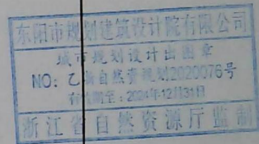 东阳市规划建筑设计院有限公司
城市规划设计出图章
NO: 乙浙自然资规划2020076号
有效期至：2024年12月31日
浙江省自然资源厅监制